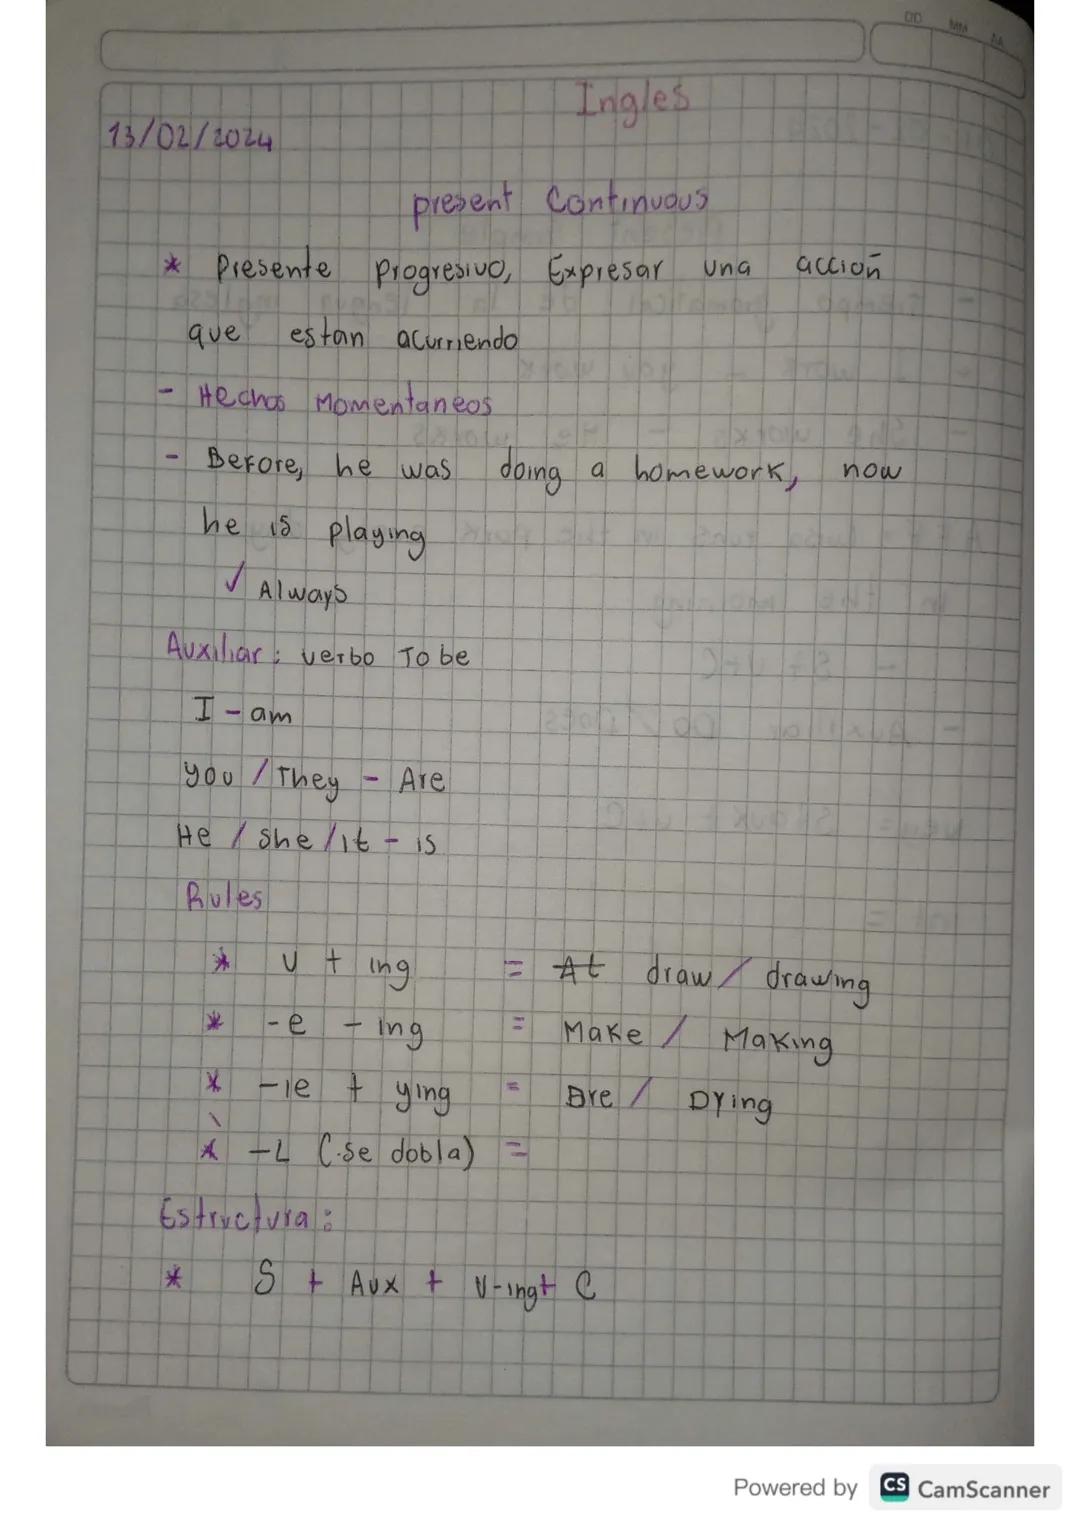 DD MM AA
Ingles
13/02/2024
present Continuous
* Presente progresivo, Expresar una acción
que estan acurriendo
- Hechos Momentaneos
- Before, he was doing a homework, now
he is playing
✓ Always
Auxiliar: verbo To be
I - am
you / They - Are
He / She / it - is
Rules
* V + ing = At draw / drawing
* -e - ing = Make / Making
* -ie + ying = Die / Dying
* -L (-se dobla) =
Estructura:
* S + Aux + V-ing + C
Powered by CS CamScanner